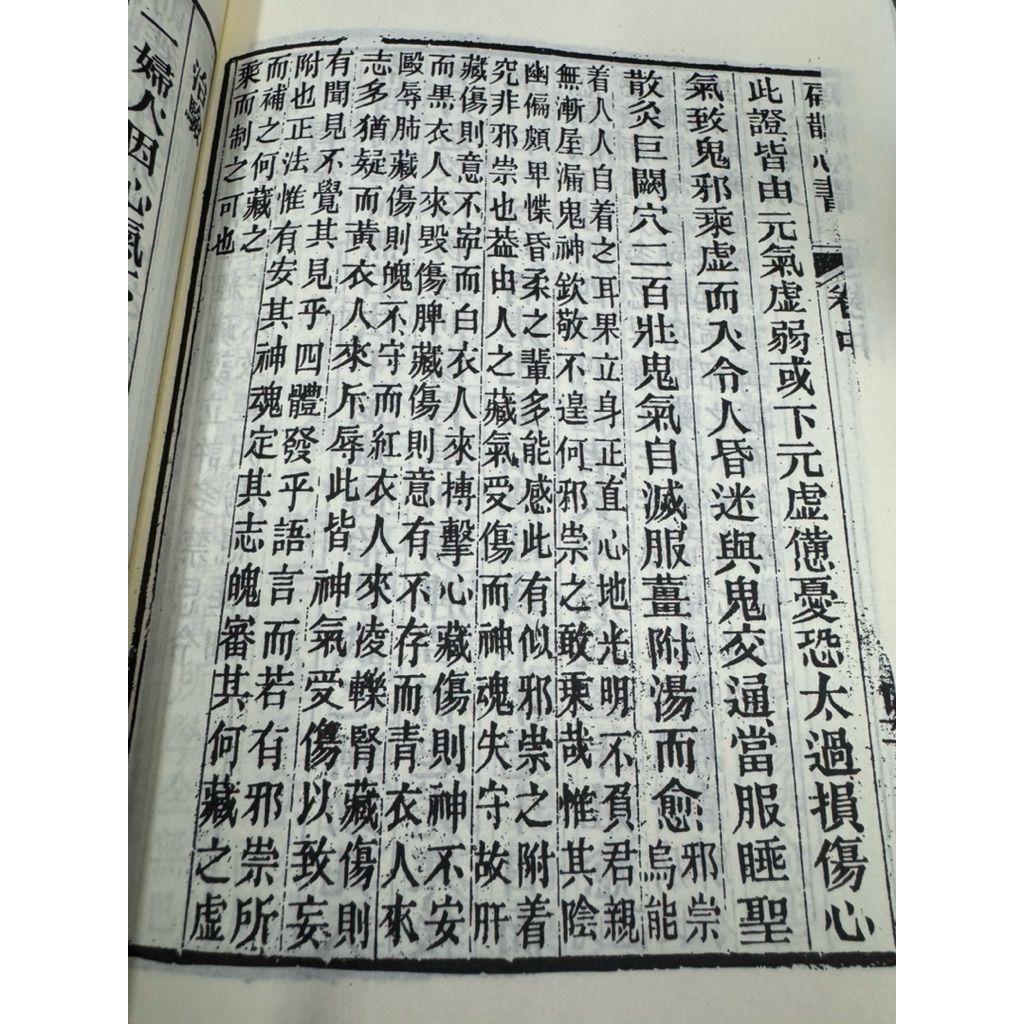 扁鵲心書 卷中
此證皆由元氣虛弱或下元虛憊憂恐太過損傷心
氣致鬼邪乘虛而入令人昏迷與鬼交通當服睡聖
散灸巨闕穴二百壯鬼氣自滅服薑附湯而愈邪祟烏能
着人人自着之耳果立身正直心地光明不負君親
無漸屋漏鬼神欽敬不遑何邪祟之敢乘哉惟其陰
幽偏頗卑惵昏柔之輩多能感此有似邪祟之附着
究非邪祟也葢由人之藏氣受傷而神魂失守故肝
藏傷則意不寧而白衣人來搏擊心藏傷則神不安
而黑衣人來毀傷脾藏傷則意有不存而青衣人來
毆辱肺藏傷則魄不守而紅衣人來凌轢腎藏傷則
志多猶疑而黃衣人來斥辱此皆神氣受傷以致妄
有聞見不覺其見乎四體發乎語言而若有邪祟所
附也正法惟有安其神魂定其志魄審其何藏之虛
而補之何藏之
乘而制之可也
治驗
一婦人因心氣